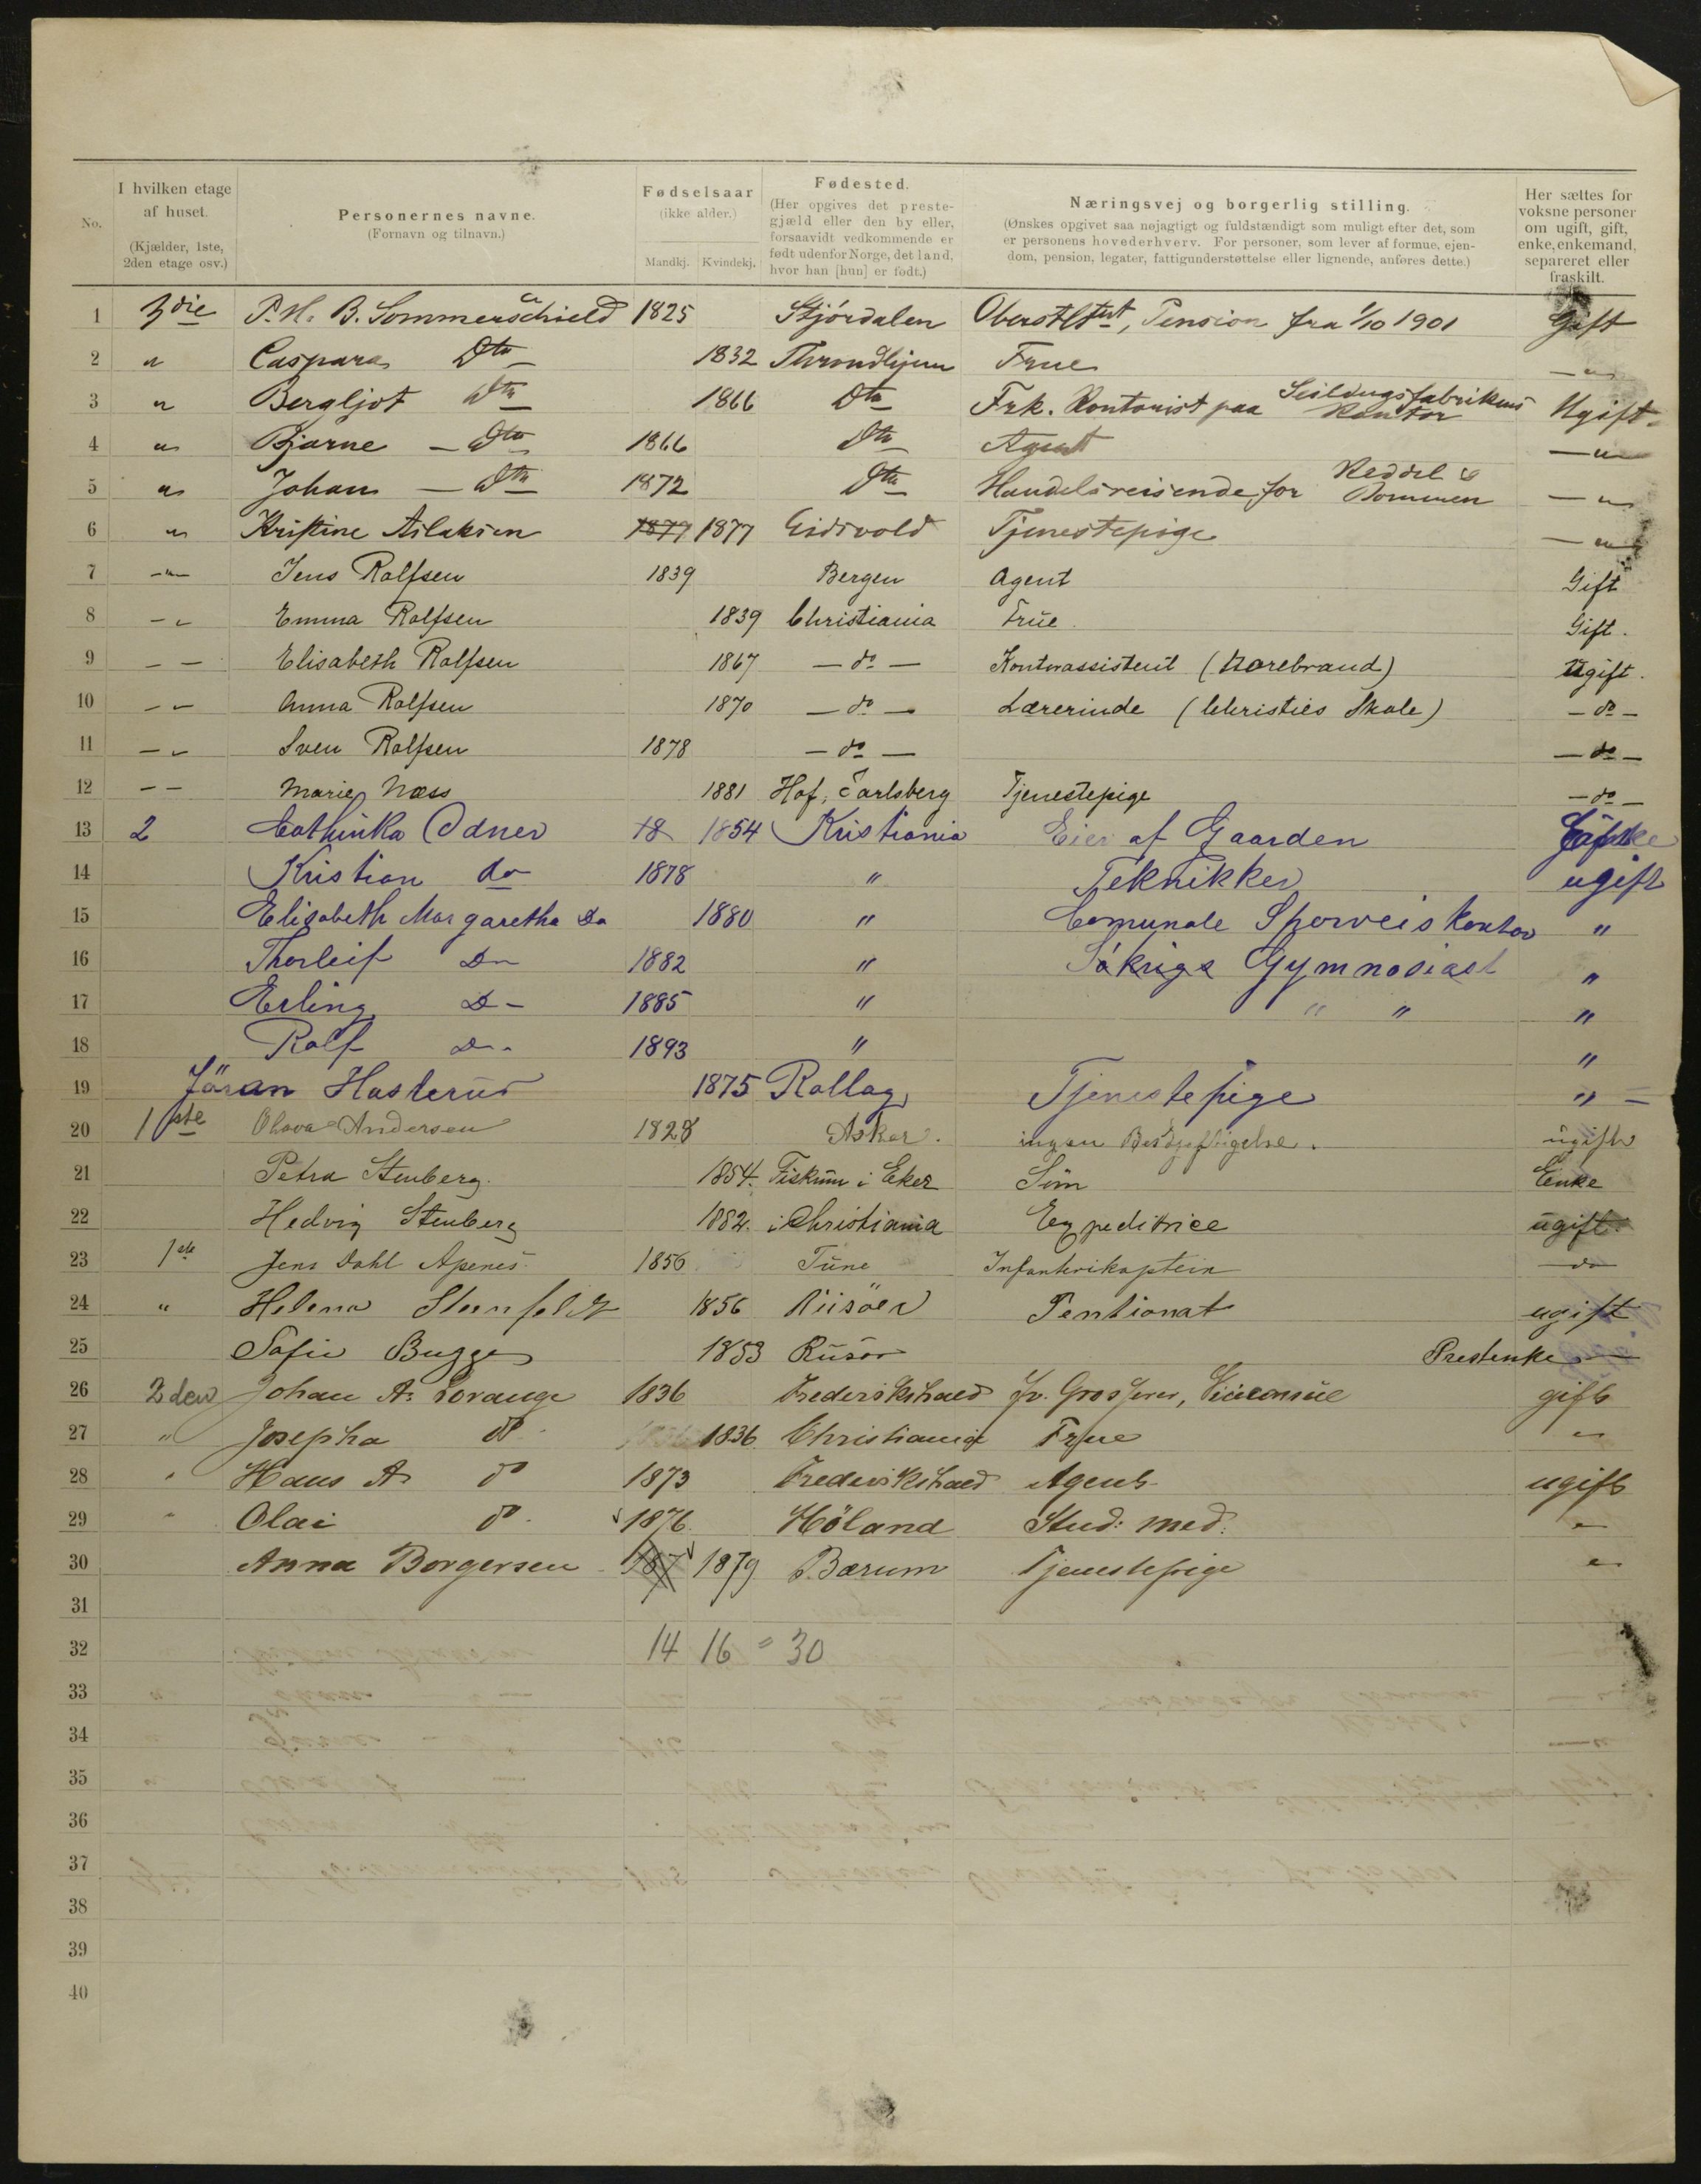 No.
I hvilken etage af huset. (Kjælder, 1ste, 2den etage osv.)
Personernes navne. (Fornavn og tilnavn.)
Fødselsaar (ikke alder.) Mandkj. Kvindekj.
Fødested. (Her opgives det prestegjæld eller den by eller, forsaavidt vedkommende er født udenfor Norge, det land, hvor han [hun] er født.)
Næringsvej og borgerlig stilling. (Ønskes opgivet saa nøjagtigt og fuldstændigt som muligt efter det, som er personens hovederhverv. For personer, som lever af formue, ejendom, pension, legater, fattigunderstøttelse eller lignende, anføres dette.)
Her sættes for voksne personer om ugift, gift, enke, enkemand, separeret eller fraskilt.
1 3die P. H. B. Sommerschield 1825 Stjørdalen Oberstltnt, Pension fra 1/10 1901 Gift
2 " Caspara Dto 1832 Throndhjem Frue — " —
3 " Bergljot Dto 1866 Dto Frk. Kontorist paa Seildugsfabrikens Kontor Ugift
4 " Bjarne — Dto 1866 Dto Agent — " —
5 " Johan — Dto 1872 Dto Handelsreisende for — " —
6 " Kristine Aslaksen 1877 1877 Eidsvold Tjenestepige — " —
7 — " — Jens Rolfsen 1839 Bergen Agent Gift
8 — " Emma Rolfsen 1839 Christiania Frue Gift.
9 — — Elisabeth Rolfsen 1867 — do — Kontorassistent (Norebrand) Ugift.
10 — " Anna Rolfsen 1870 — do — Lærerinde (Christies Skole) — do —
11 — " Sven Rolfsen 1878 — do — — do —
12 — — Marie Næss 1881 Hof, Jarlsberg Tjenestepige — do —
13 2 Cathinka Odner 18 1854 Kristiania Eier af Gaarden Enke
14 Kristian do 1878 " Teknikker ugift
15 Elisabeth Margaretha Do 1880 " Comunale Sporveiskontor "
16 Thorleif Do 1882 " Gymnasiast "
17 Erling D — 1885 " " " "
18 Rolf D — 1893 " "
19 Jöran Hasterud 1875 Rollag Tjenestepige " —
20 1ste Olava Andersen 1828 Asker. ingen ugift
21 Petra Stenberg. 1854. Fiskum i Eker Søm Enke
22 Hedvig Stenberg 1882. i Christiania Expeditrice ugift.
23 1ste Jens Dahl Apenes 1856 Tune Infanterikaptein do
24 " Helena Steenfeldt 1856 Riisöer Pentionat ugift
25 Sofie Bugge 1853 Risør Prestenke
26 2den Johan A. Lorange 1836 Frederikshald fv. Grosserer, Viceconsul gift
27 " Josepha do 1836 Christiania Frue "
28 " Hans A. do 1873 Frederikshald Agent ugift
29 " Olai do. 1876. Høland Stud: med: "
30 Anna Borgersen 187 1879 Bærum Tjenestepige "
31
32 14 16 = 30
33
34
35
36
37
38
39
40